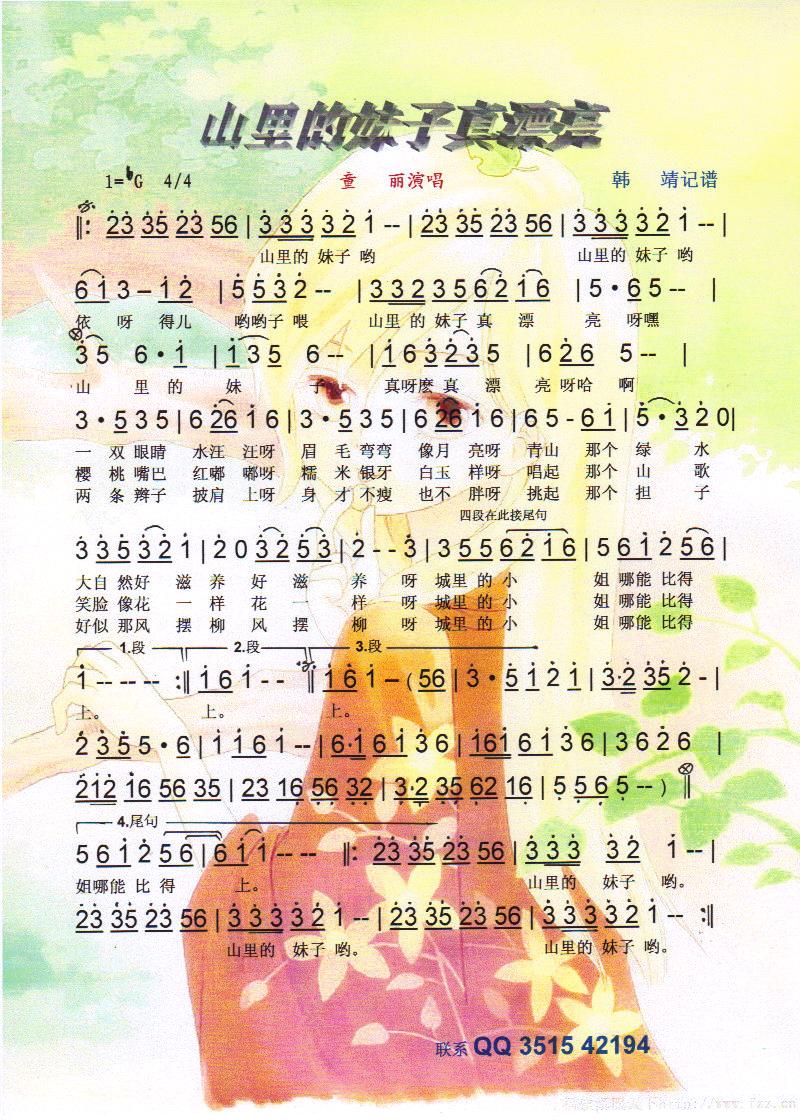 山里的妹子真漂亮
1=♭G 4/4 童 丽演唱 韩 靖记谱
‖: 23 35 23 56 | 3 3 3 3 2 1 -- | 23 35 23 56 | 3 3 3 3 2 1 -- |
山里的 妹子 哟 山里的 妹子 哟
6 1 3 - 1 2 | 5 5 3 2 -- | 3 3 2 3 5 6 2 1 6 | 5 · 6 5 -- |
依 呀 得儿 哟哟子 喂 山里 的 妹子 真 漂 亮 呀嘿
3 5 6 · 1 | 1 3 5 6 -- | 1 6 3 2 3 5 | 6 2 6 5 -- |
山 里 的 妹 子 真呀麽 真 漂 亮 呀哈 啊
3 · 5 3 5 | 6 26 1 6 | 3 · 5 3 5 | 6 26 1 6 | 6 5 - 6 1 | 5 · 3 2 0 |
一 双 眼睛 水汪 汪呀 眉 毛 弯弯 像月 亮呀 青山 那个 绿 水
樱 桃 嘴巴 红嘟 嘟呀 糯 米 银牙 白玉 样呀 唱起 那个 山 歌
两 条 辫子 披肩 上呀 身 才 不瘦 也不 胖呀 挑起 那个 担 子
四段在此接尾句
3 3 5 3 2 1 | 2 0 3 2 5 3 | 2 - - 3 | 3 5 5 6 2 1 6 | 5 6 1 2 5 6 |
大自 然好 滋 养 好 滋 养 呀 城里 的 小 姐 哪能 比得
笑脸 像花 一 样 花 一 样 呀 城里 的 小 姐 哪能 比得
好似 那风 摆 柳 风 摆 柳 呀 城里 的 小 姐 哪能 比得
1.段 2.段 3.段
1 -- -- -- :‖ 1 6 1 - -- ‖ 1 6 1 – ( 56 | 3 · 5 1 2 1 | 3·2 35 2 - |
上。 上。 上。
2 3 5 5 · 6 | 1 1 6 1 -- | 6·1 6 1 3 6 | 161 6 1 3 6 | 3 6 2 6 |
212 16 56 35 | 23 16 56 32 | 3·2 35 62 16 | 5 5 6 5 -- ) ‖
4.尾句
5 6 1 2 5 6 | 6 1 1 -- -- ‖: 23 35 23 56 | 3 3 3 3 2 1 -- |
姐哪能 比 得 上。 山里的 妹子 哟。
23 35 23 56 | 3 3 3 3 2 1 -- | 23 35 23 56 | 3 3 3 3 2 1 -- :‖
山里的 妹子 哟。 山里的 妹子 哟。
联系 QQ 3515 42194